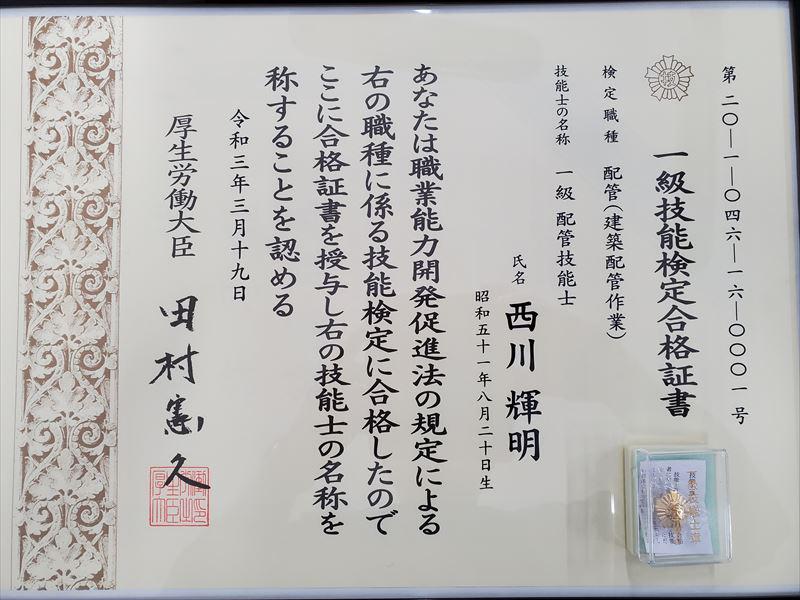 第二〇―一―〇四六―一六―〇〇〇一号
一級技能検定合格証書
検定職種 配管(建築配管作業)
技能士の名称 一級 配管技能士
氏名 西川 輝明
昭和五十一年八月二十日生
あなたは職業能力開発促進法の規定による
右の職種に係る技能検定に合格したので
ここに合格証書を授与し右の技能士の名称を
称することを認める
令和三年三月十九日
厚生労働大臣 田村憲久